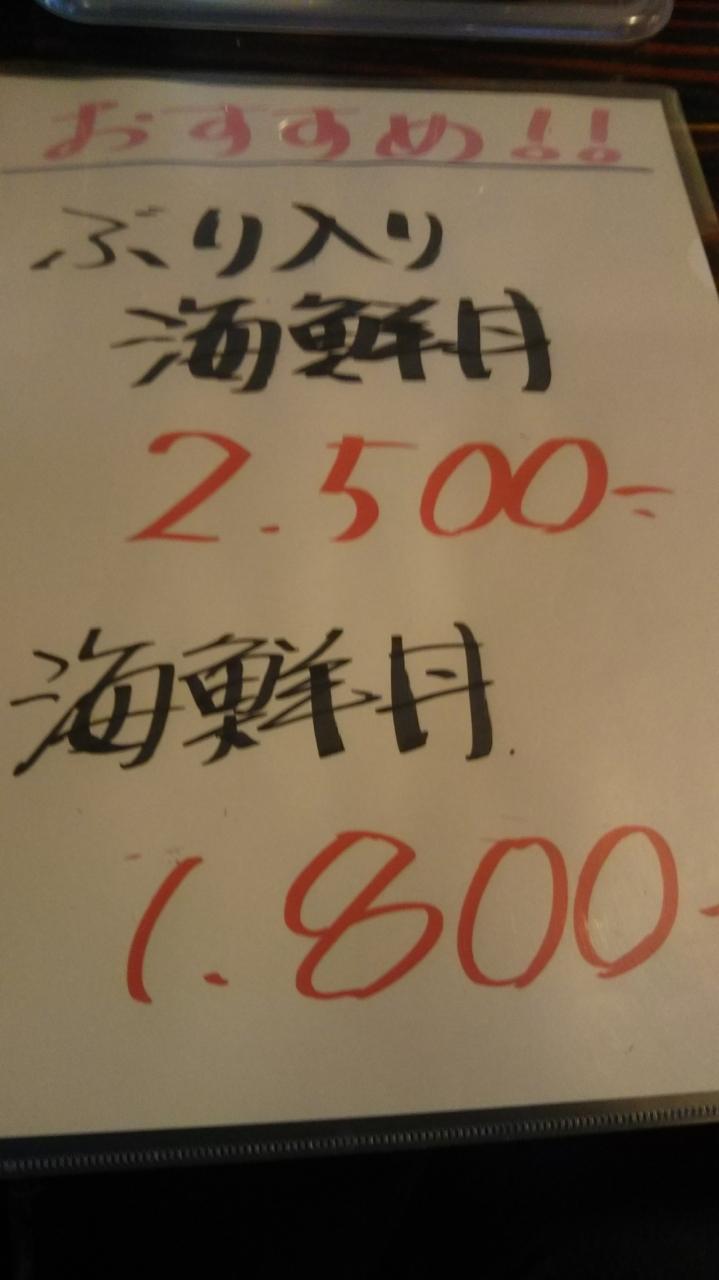 おすすめ!!
ぶり入り
海鮮丼
2.500-
海鮮丼
1.800-